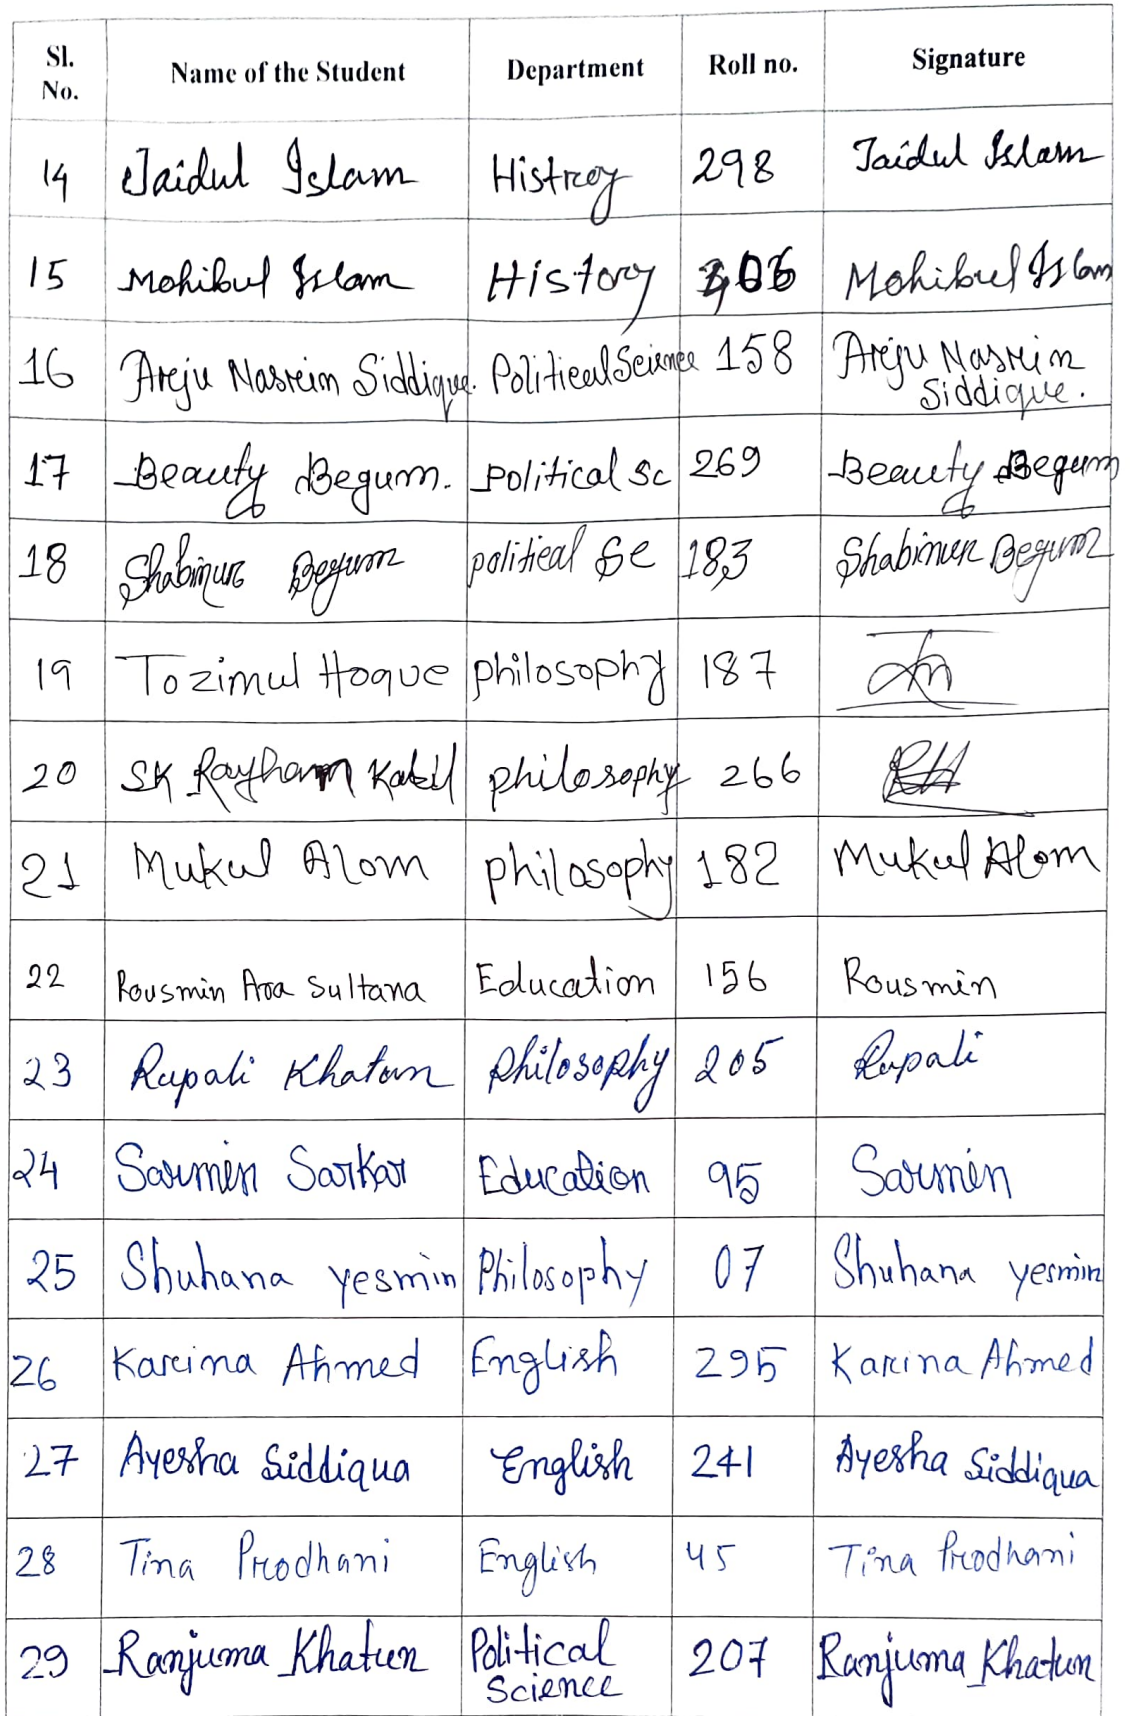 Sl. No. Name of the Student Department Roll no. Signature
14 Jaidul Islam Histroy 298 Jaidul Islam
15 Mohibul Islam History Mohibul Islam
16 Areju Nasreim Siddique. Political Science 158 Areju Nasreim Siddique.
17 Beauty Begum. Political Sc 269 Beauty Begum
18 Shabinur Begum political Sc 183 Shabinur Begum
19 Tozimul Hoque philosophy 187
20 SK Rayhan philosophy 266
21 Mukul Alom philosophy 182 Mukul Alom
22 Rousmin Ara Sultana Education 156 Rousmin
23 Rupali Khatun Philosophy 205 Rupali
24 Sarmin Sarkar Education 95 Sarmin
25 Shuhana yesmin Philosophy 07 Shuhana yesmin
26 Karina Ahmed English 295 Karina Ahmed
27 Ayesha Siddiqua English 241 Ayesha Siddiqua
28 Tina Prodhani English 45 Tina Prodhani
29 Ranjuma Khatun Political Science 207 Ranjuma Khatun